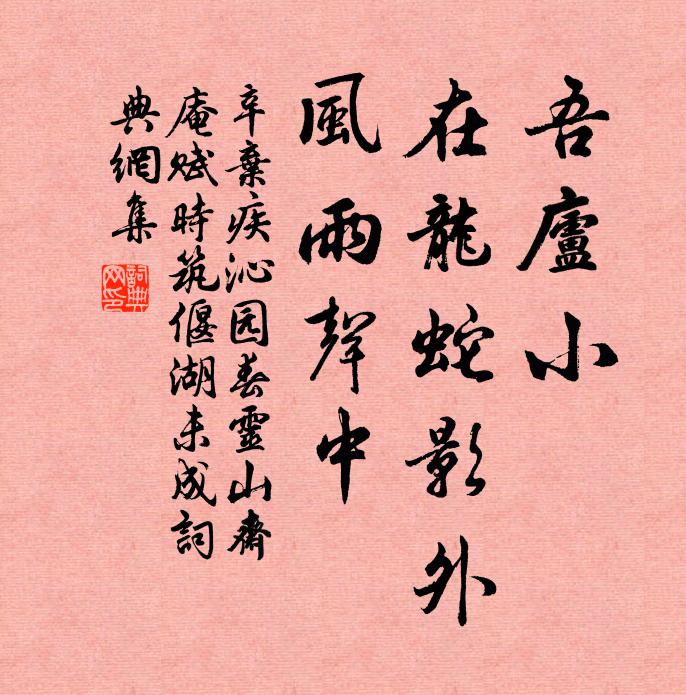 吾廬小
在龍蛇影外
風雨聲中
辛棄疾沁园春靈山齊
庵賦時筑偃湖未成詞
典網集
詞典網印